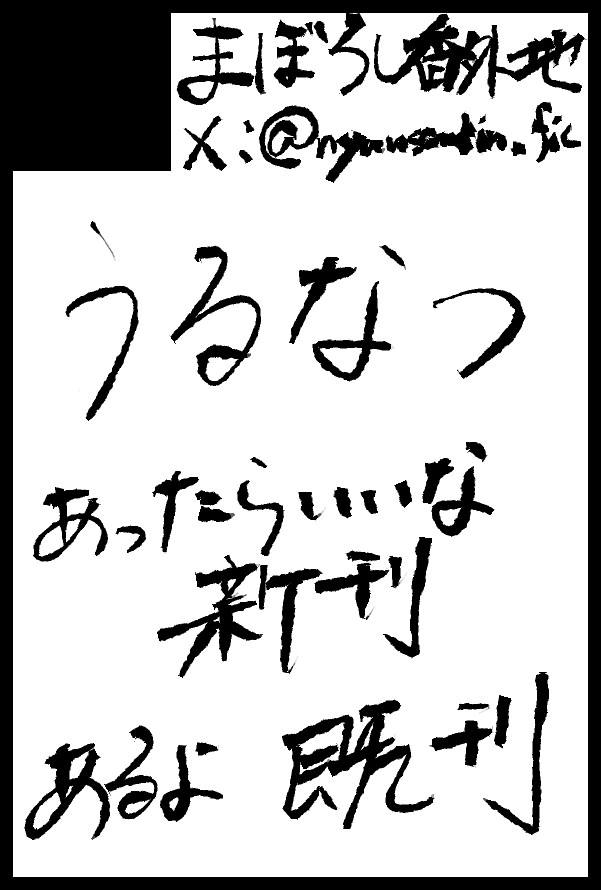 まぼろし番外地
X:@
うるなつ
あったらいいな
新刊
あるよ 既刊